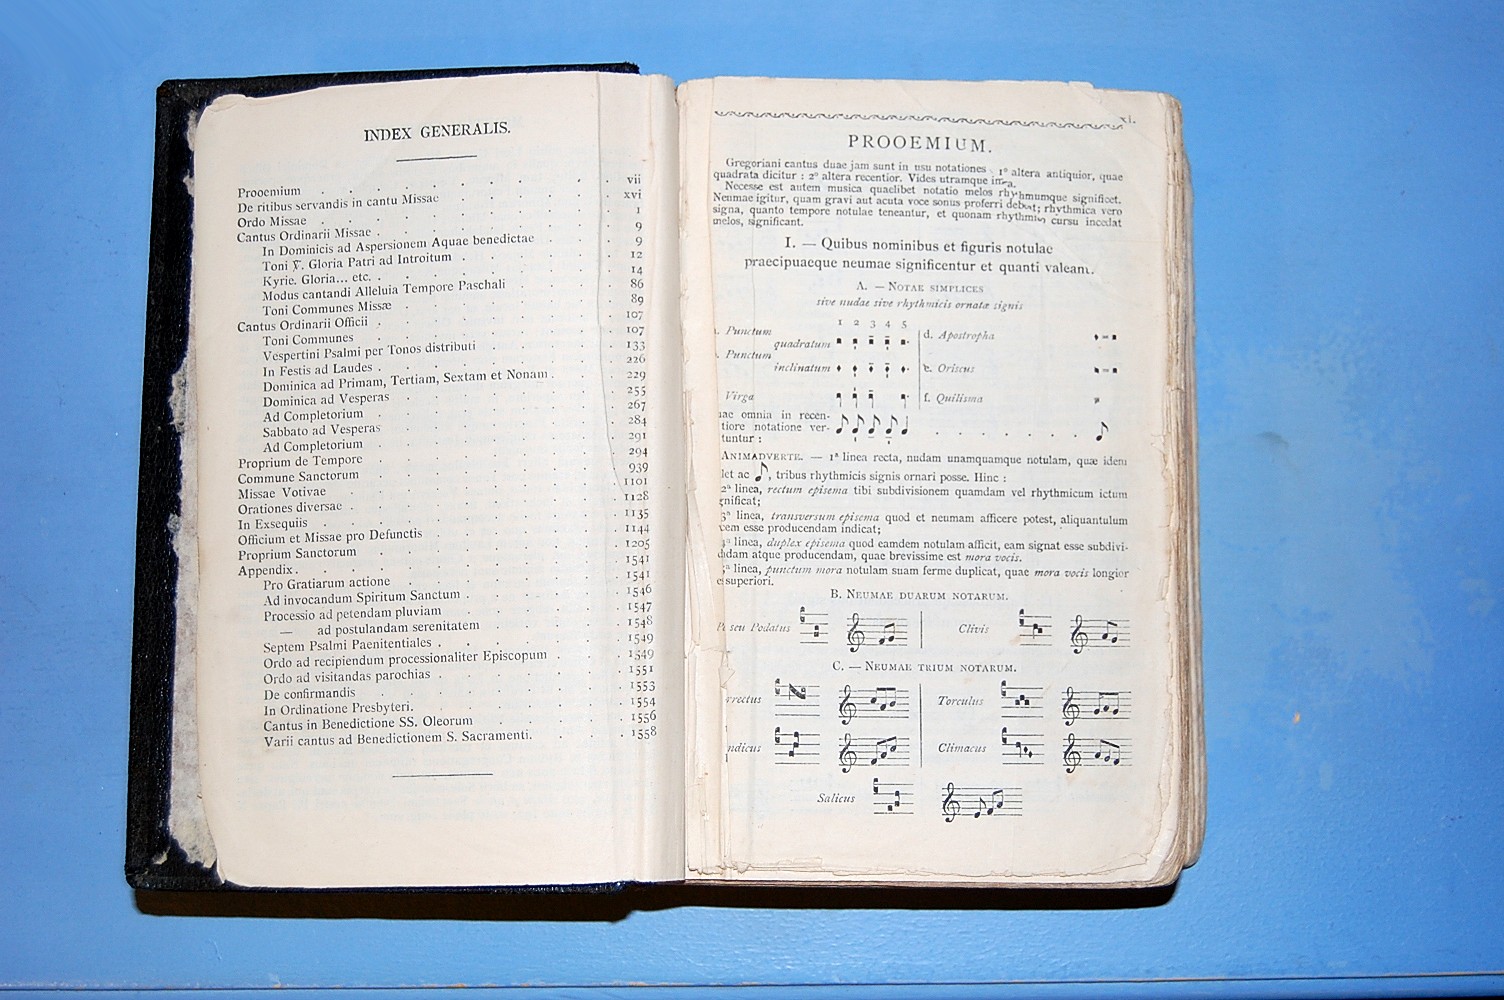 INDEX GENERALIS.
Prooemium . . . . . . . . . vii
De ritibus servandis in cantu Missae . . . . . . xvi
Ordo Missae . . . . . . . . . 1
Cantus Ordinarii Missae . . . . . . . . 9
In Dominicis ad Aspersionem Aquae benedictae . . . 9
Toni ℣. Gloria Patri ad Introitum . . . . . 12
Kyrie. Gloria... etc. . . . . . . . 14
Modus cantandi Alleluia Tempore Paschali . . . . 86
Toni Communes Missæ . . . . . . 89
Cantus Ordinarii Officii . . . . . . . . 107
Toni Communes . . . . . . . 107
Vespertini Psalmi per Tonos distributi . . . . 133
In Festis ad Laudes . . . . . . . 226
Dominica ad Primam, Tertiam, Sextam et Nonam . . . 229
Dominica ad Vesperas . . . . . . 255
Ad Completorium . . . . . . . 267
Sabbato ad Vesperas . . . . . . 284
Ad Completorium . . . . . . . 291
Proprium de Tempore . . . . . . . 294
Commune Sanctorum . . . . . . . 939
Missae Votivae . . . . . . . . 1101
Orationes diversae . . . . . . . . 1128
In Exsequiis . . . . . . . . 1135
Officium et Missae pro Defunctis . . . . . . 1144
Proprium Sanctorum . . . . . . . 1205
Appendix . . . . . . . . . 1541
Pro Gratiarum actione . . . . . . 1541
Ad invocandum Spiritum Sanctum . . . . . 1546
Processio ad petendam pluviam . . . . . 1547
— ad postulandam serenitatem . . . . 1548
Septem Psalmi Paenitentiales . . . . . . 1549
Ordo ad recipiendum processionaliter Episcopum . . . 1549
Ordo ad visitandas parochias . . . . . . 1551
De confirmandis . . . . . . . 1553
In Ordinatione Presbyteri. . . . . . . 1554
Cantus in Benedictione SS. Oleorum . . . . . 1556
Varii cantus ad Benedictionem S. Sacramenti. . . . 1558
xi.
PROOEMIUM.
Gregoriani cantus duae jam sunt in usu notationes : 1º altera antiquior, quae
quadrata dicitur : 2º altera recentior. Vides utramque
Necesse est autem musica quaelibet notatio melos rhythmumque significet.
Neumae igitur, quam gravi aut acuta voce sonus proferri debeat; rhythmica vero
signa, quanto tempore notulae teneantur, et quonam rhythmico cursu incedat
melos, significant.
I. — Quibus nominibus et figuris notulae
praecipuaeque neumae significentur et quanti valeant.
A. — NOTAE SIMPLICES
sive nudae sive rhythmicis ornatæ signis
1 2 3 4 5
Punctum
quadratum
Punctum
inclinatum
Virga
d. Apostropha
e. Oriscus
f. Quilisma
omnia in recen-
tiore notatione ver-
tuntur :
ANIMADVERTE. — 1ª linea recta, nudam unamquamque notulam, quæ idem
ac , tribus rhythmicis signis ornari posse. Hinc :
2ª linea, rectum episema tibi subdivisionem quamdam vel rhythmicum ictum
gnificat;
3ª linea, transversum episema quod et neumam afficere potest, aliquantulum
esse producendam indicat;
4ª linea, duplex episema quod eamdem notulam afficit, eam signat esse subdivi-
dendam atque producendam, quae brevissime est mora vocis.
5ª linea, punctum mora notulam suam ferme duplicat, quae mora vocis longior
superiori.
B. NEUMAE DUARUM NOTARUM.
seu Podatus
Clivis
C. — NEUMAE TRIUM NOTARUM.
rrectus
Torculus
ndicus
Climacus
Salicus